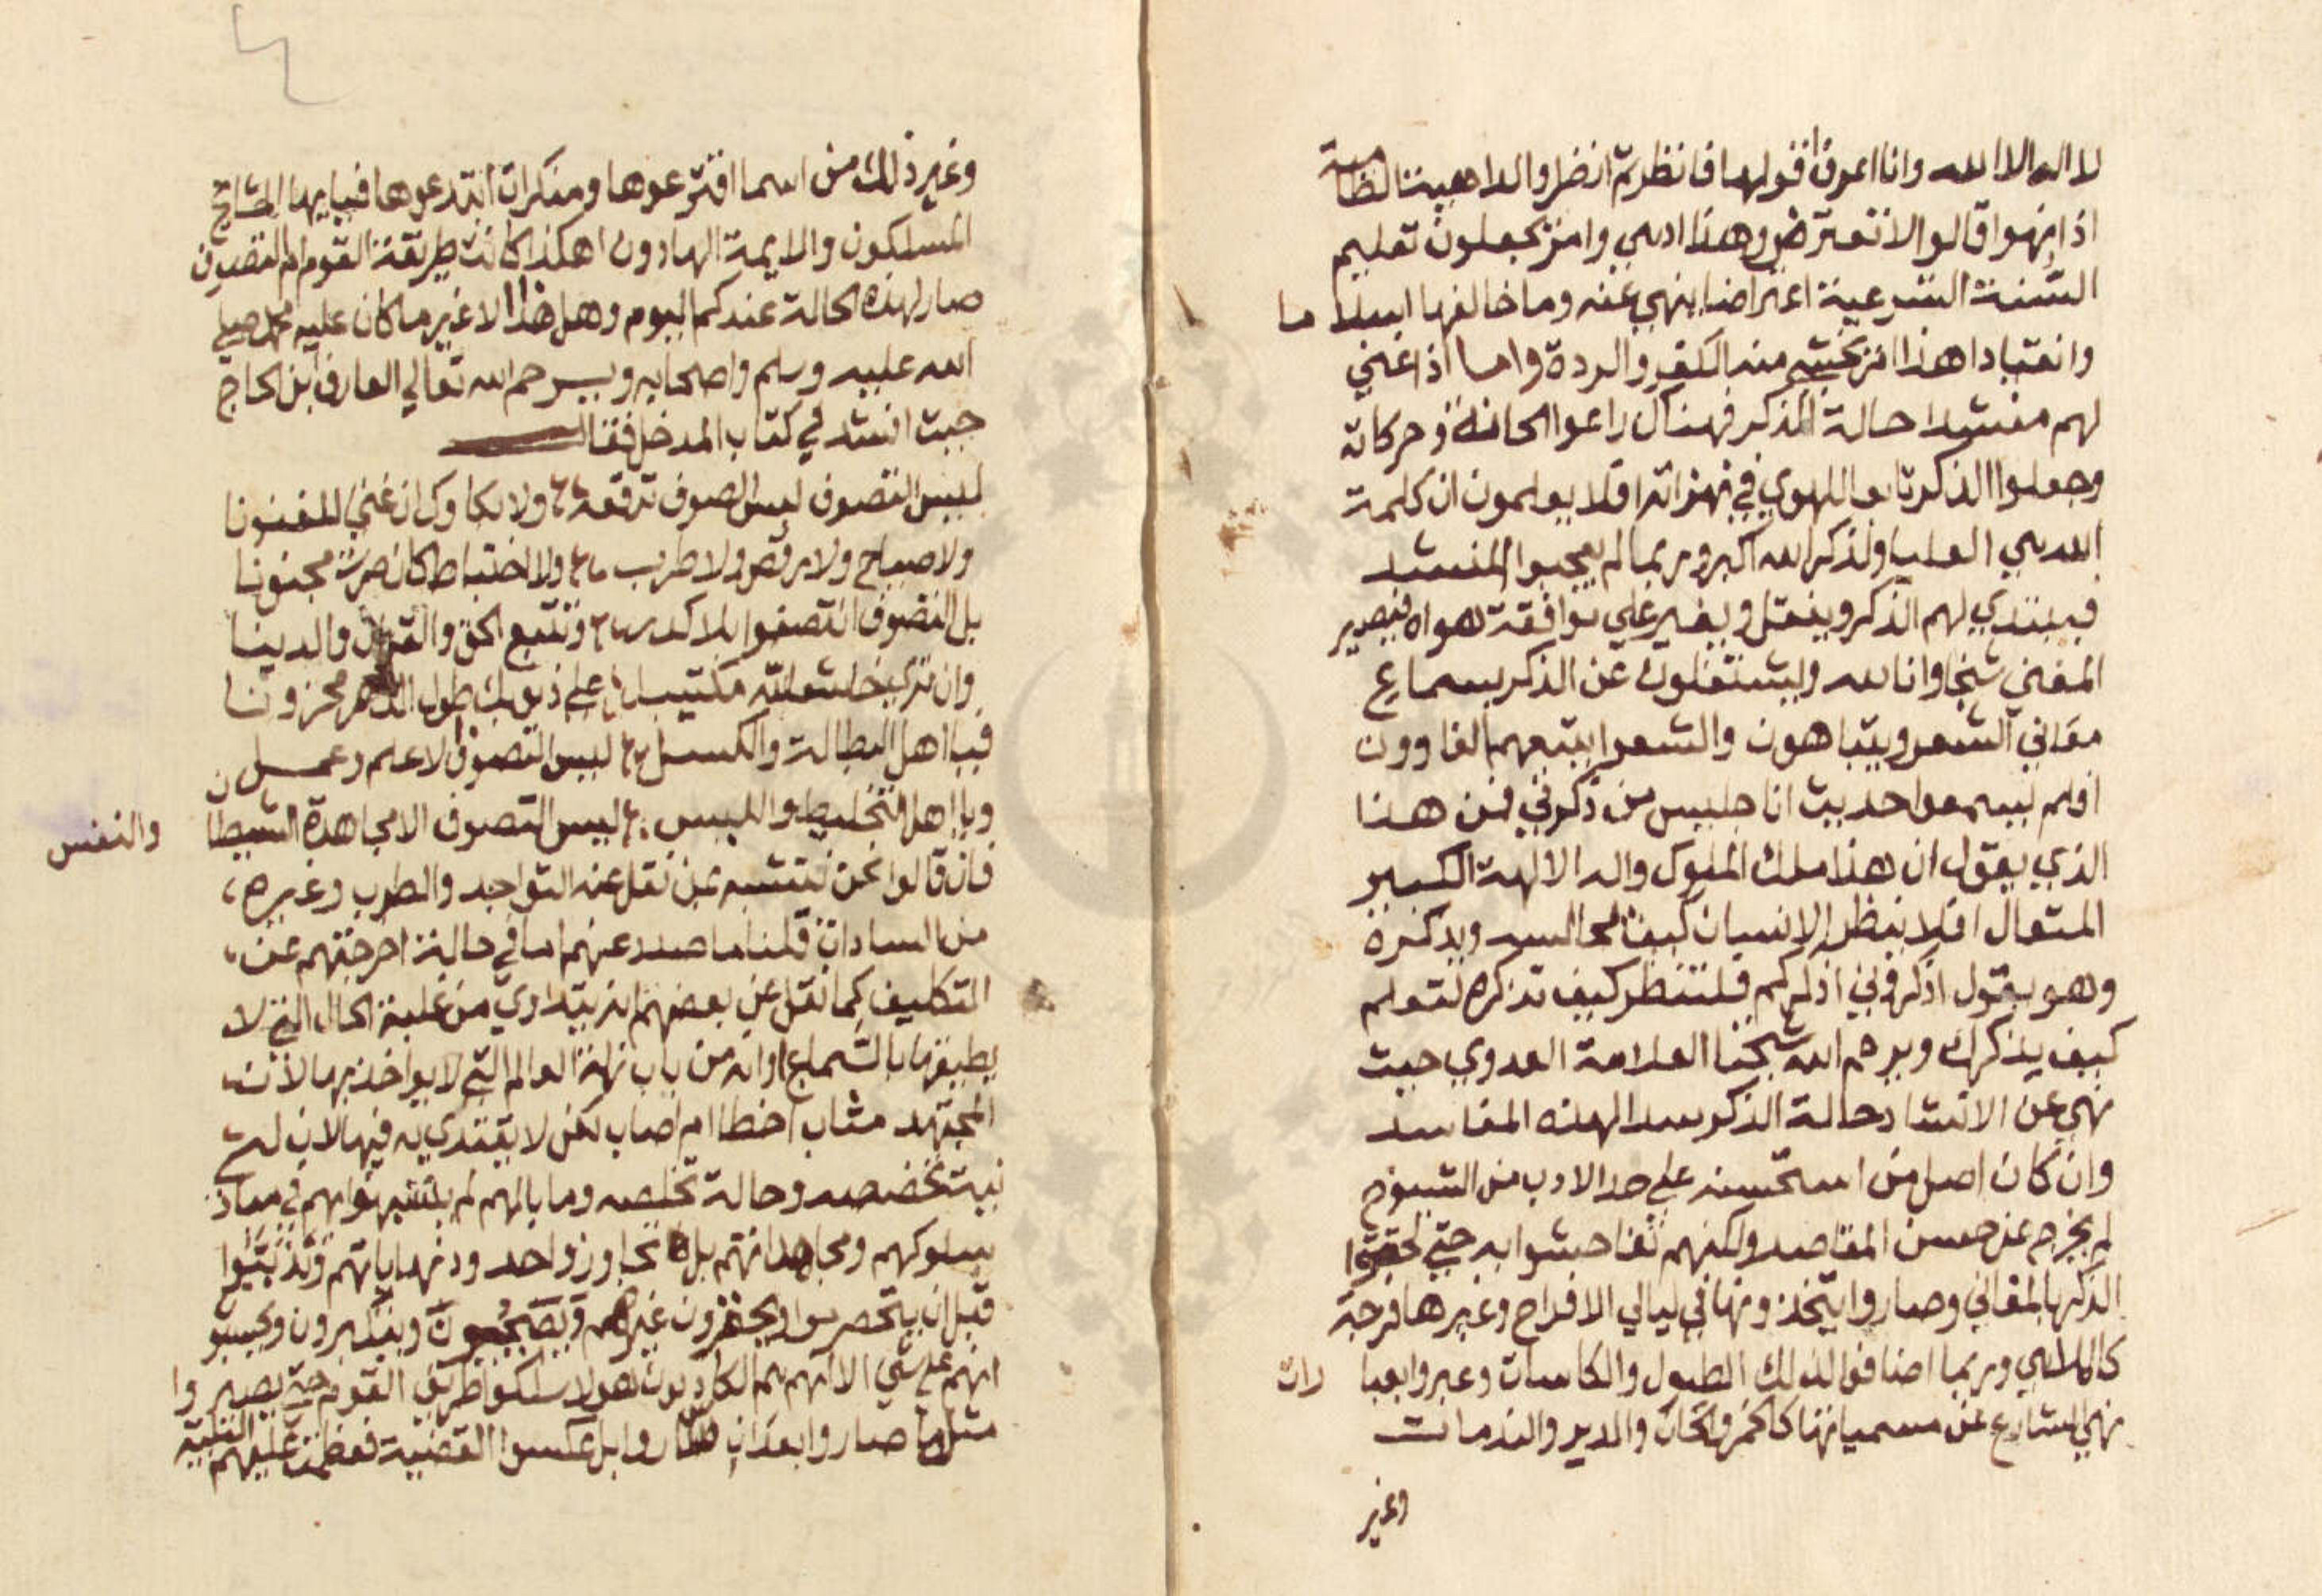 لا اله الا الله وانا اعرف اقولها فانظر ثم انظر والداهية الظامية
اذا نهوا قالوا لا تعترض وهذا ادبي وامن يجعلون تعليم
السنة الشرعية اعتراضا ينهي عنه وما خالفها اسلاما
وانقيادا هذا امر يخشي منه الكفر والردة واما اذا غني
لهم منشد حالة الذكر فهناك راعوا الحانه وحركاته
وجعلوا الذكر تابع اللهوي في نهزاته افلا يعلمون ان كلمة
الله هي العليا ولذكر الله اكبر وربما لم يعجبوا المنشد
فيبتدي لهم الذكر وينقل ويغير علي موافقة هواه فيصير
المغني شيخا وانا لله ويشتغلون عن الذكر بسماع
معاني الشعر ويتباهون والشعرا يتبعهم الغاوون
اولم يسمعوا حديث انا جليس من ذكرني فمن هذا
الذي يقول ان هذا ملك الملوك واله الالهة الكبير
المتعال افلا ينظر الانسان كيف يجالسه ويذكره
وهو يقول اذكروني اذكركم فلتنظر كيف تذكره لتعلم
كيف يذكرك ويرحم الله شيخنا العلامة العدوي حيث
نهي عن الانشاد حالة الذكر سدا لهذه المفاسد
وان كان اصل من استحسنه علي حد الادب من الشيوخ
لم يخرج عن حسن المقاصد ولكنهم تفاحشوا به حتي لحقوا
الذكر بالمغاني وصاروا يتخذونها في ليالي الافراح وغيرها فرجة
كالملاهي وربما اضافوا لذلك الطبول والكاسات وعبروا بعبارات
نهي الشارع عن مسمياتها كالخمر والحان والدير والندمان
وغير
وغير ذلك من اسما افترعوها ومنكرات ابتدعوها فيا ايها المشايخ
المسلكون والايمة الهادون اهكذا كانت طريقة القوم ام التصوف
صار لهذه الحالة عندكم اليوم وهل هذا الا غير ما كان عليه محمد صلي
الله عليه وسلم واصحابه ويرحم الله تعالي العارف ابن الحاج
حيث انشد في كتاب المدخل فقال
ليس التصوف لبس الصوف ترقعه ولا بكاوك ان غني المغنونا
ولا صياح ولا رقص ولا طرب ولا اختباط كان صرت مجنونا
بل التصوف ان تصفوا بلا كدر وتتبع الحق والقران والدينا
وان تري خاشعا لله مكتيبا علي ذنوبك طول الدهر محزونا
فيا اهل البطالة والكسل ليس التصوف الا علم وعمل
ويا اهل التخليط واللبس ليس التصوف الا مجاهدة الشيطان والنفس
فان قالوا نحن نتشبه بمن نقل عنه التواجد والطرب وغيره
من السادات قلنا ما صدر عنهم اما في حالة اخرجتهم عن
التكليف كما نقل عن بعضهم انه يتداوي من غلبة الحال التي لا
يطيقها بالسماع او انه من باب زلة العالم التي لا يواخذ بها لان
المجتهد مثاب اخطا ام اصاب لكن لا يقتدي به فيها لان له
نية تخصصه وحالة تخلصه وما بالهم لم يتشبهوا بهم في مبادي
سلوكهم ومجاهداتهم بل تجاوزوا حدود نهاياتهم وتذببوا
قبل ان يتحصرموا ويحقرون غيرهم ويضجعون ويتكبرون ويحسبوا
انهم علي شي الا انهم هم الكاذبون هولا سلكوا طريق القوم حتي يصيروا
مثل ما صاروا بعد ان صاروا بل عكسوا القضية فعظمت عليهم البلية